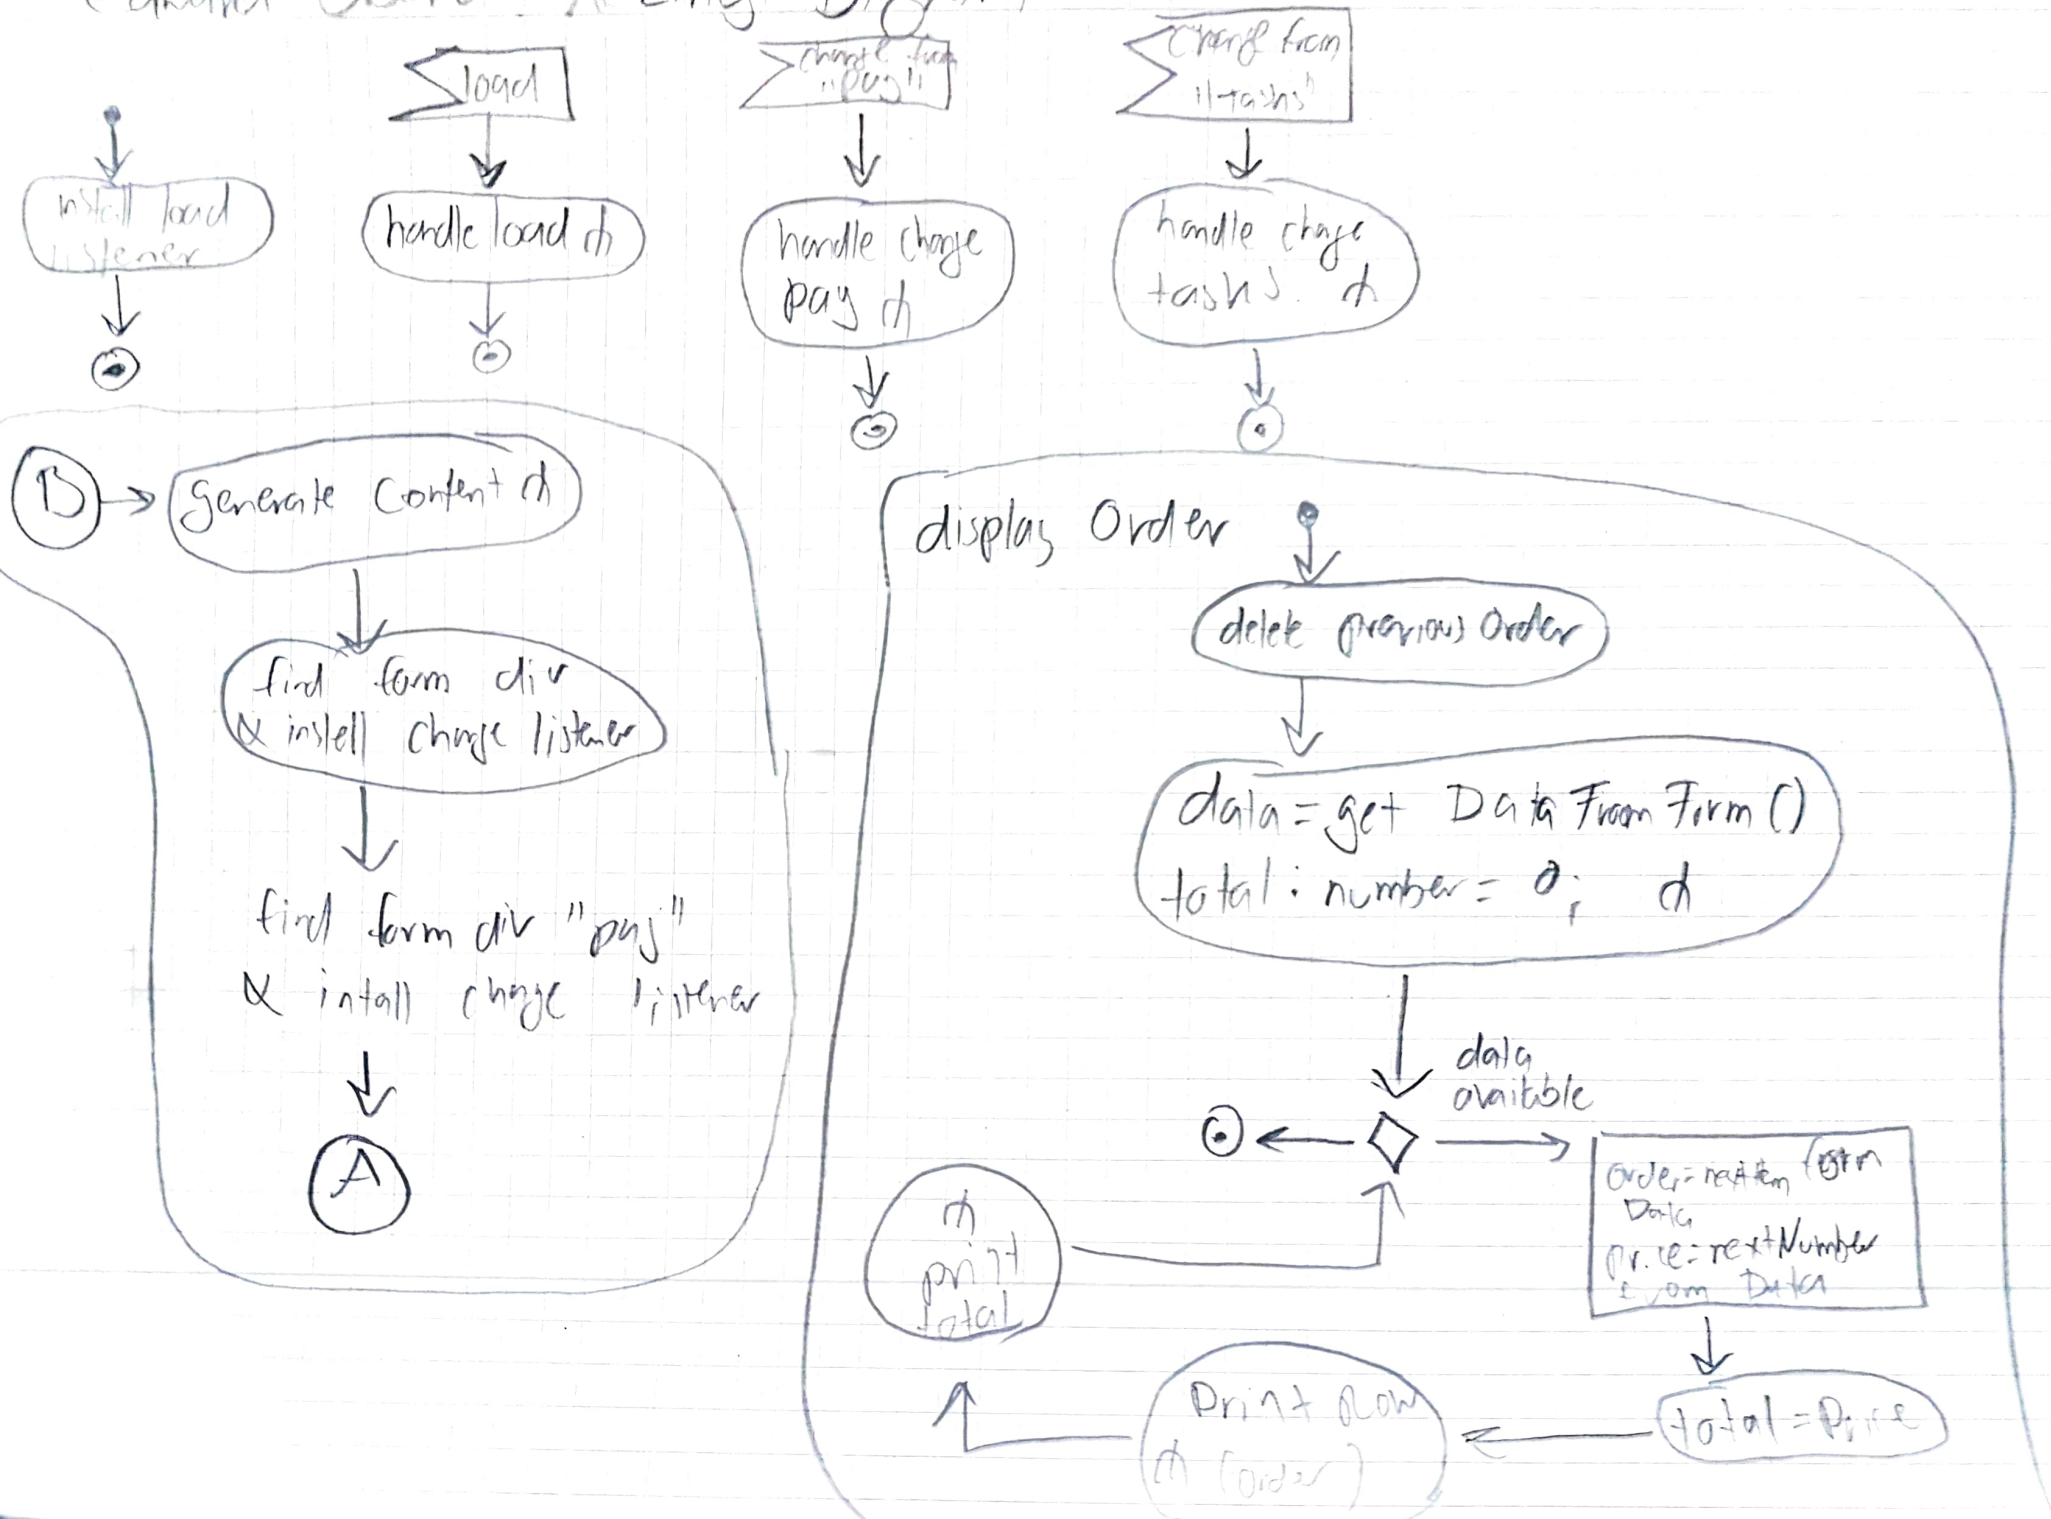 load
change from
"pay"
change from
"tasks"
install load
listener
handle load
handle change
pay
handle change
tasks
B
generate Content
find form div
& instell change listener
find form div "pay"
& intall change listener
A
display Order
delete previous Order
data = get Data From Form ()
total : number = 0;
data
available
order = nextItem
Data
price = nextNumber
from Data
total = Price
Print Row
(order)
print
total